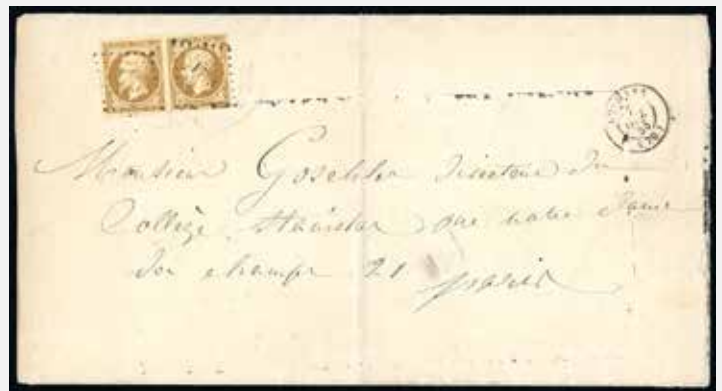 Monsieur Goschler Directeur du
Collège Stanislas rue notre Dame
des champs 21
paris